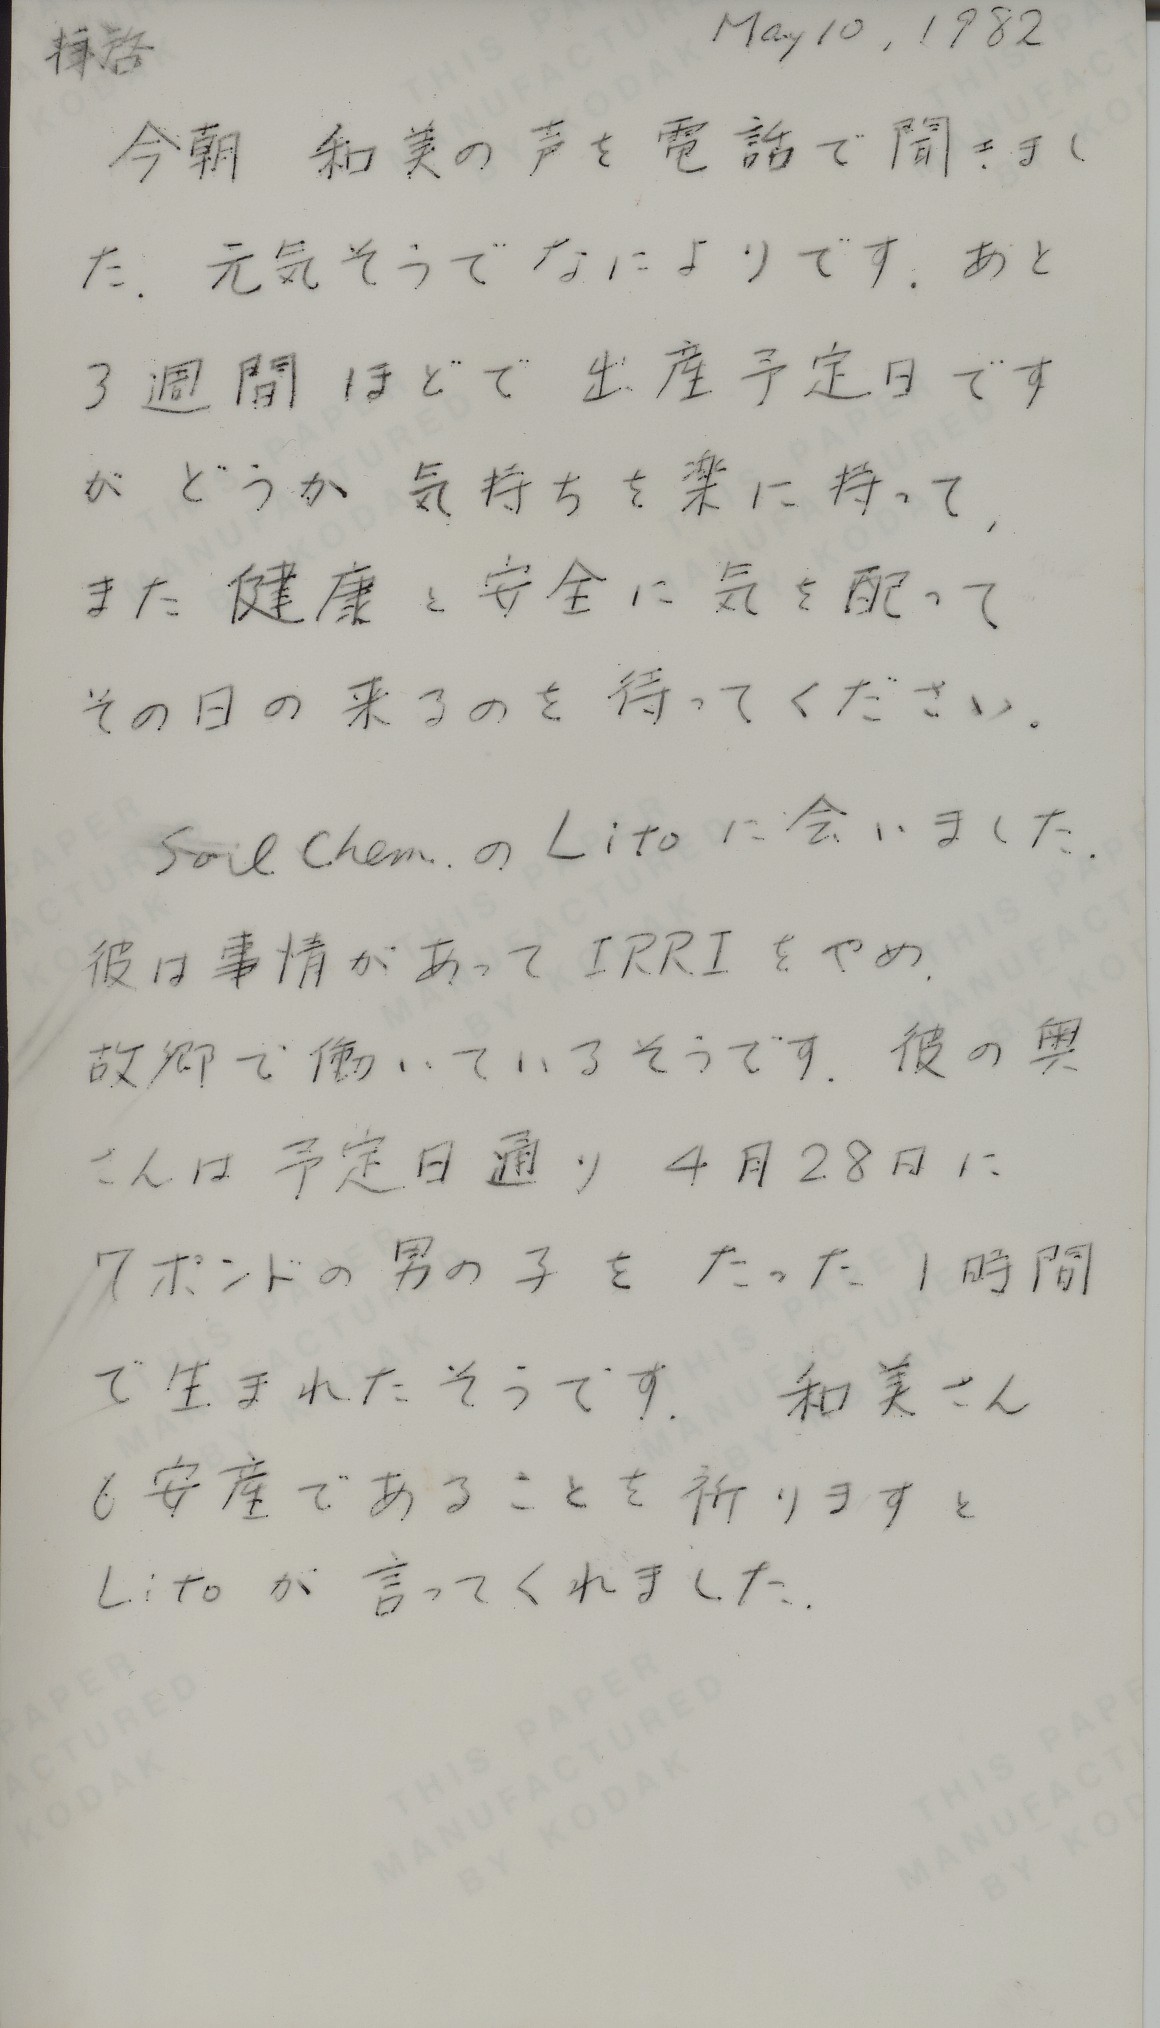 May 10, 1982
拝啓
今朝 和美の声を電話で聞きまし
た. 元気そうでなによりです. あと
3週間ほどで出産予定日です
がどうか気持ちを楽に持って,
また健康と安全に気を配って
その日の来るのを待ってください.
Soil Chem. の Lito に会いました.
彼は事情があって IRRI をやめ,
故郷で働いているそうです. 彼の奥
さんは予定日通り 4月28日に
7ポンドの男の子を たった1時間
で生まれたそうです. 和美さん
も安産であることを祈りますと
Lito が言ってくれました.
THIS PAPER
MANUFACTURED
BY KODAK